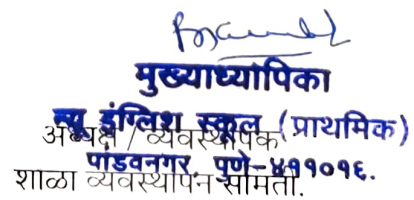 मुख्याध्यापिका
न्यू इंग्लिश स्कूल (प्राथमिक)
अध्यक्ष / व्यवस्थापक
पांडवनगर, पुणे-४११०१६.
शाळा व्यवस्थापन समिती.